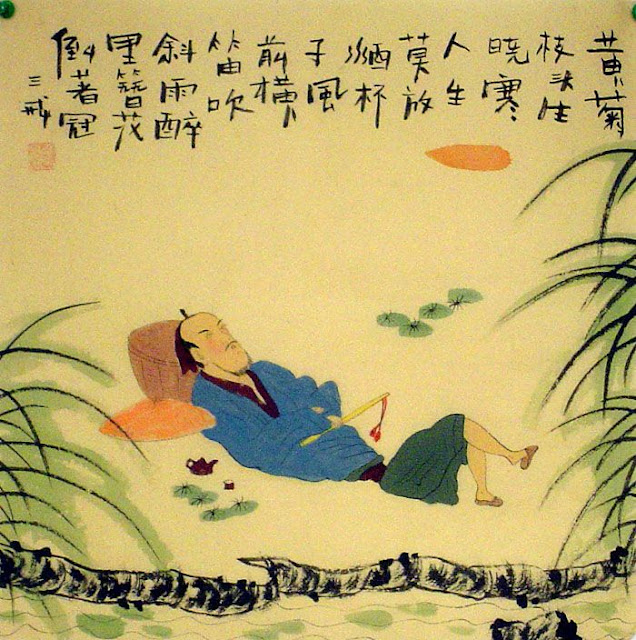 黄菊
枝头生
晓寒
人生
莫放
酒杯
干風
前横
笛吹
斜雨醉
里簪花
倒著冠
三戒